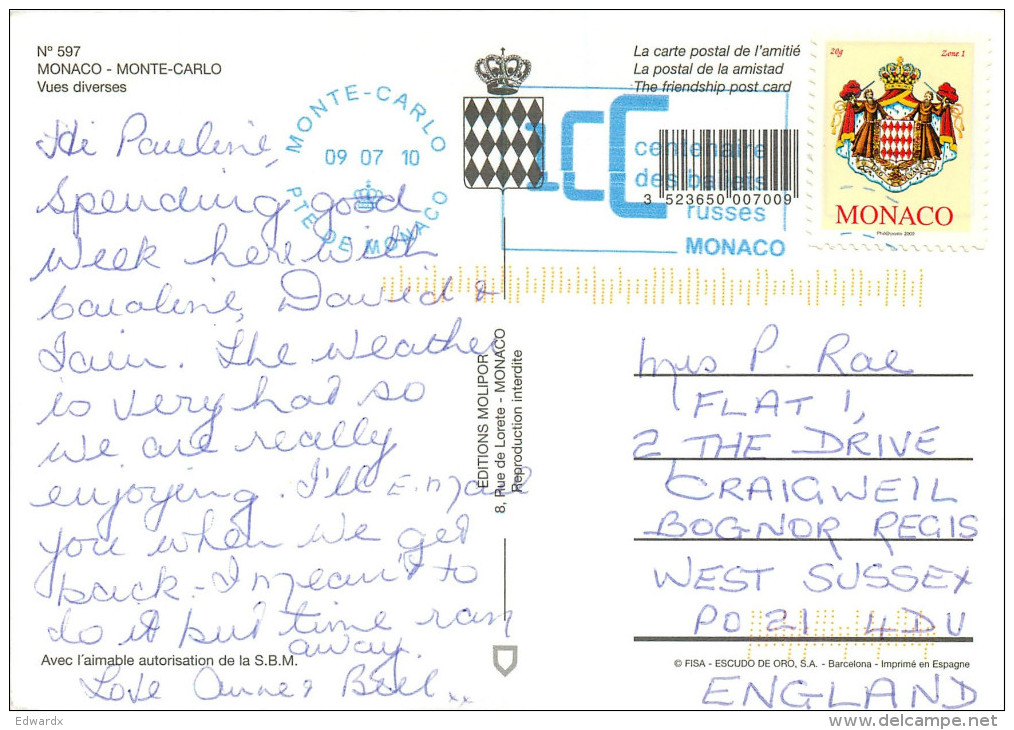 N° 597
MONACO - MONTE-CARLO
Vues diverses
La carte postal de l'amitié
La postal de la amistad
The friendship post card
MONTE-CARLO
09 07 10
PTE DE MONACO
1CC
centenaire
des ballets
russes
MONACO
3 523650 007009
20g Zone 1
MONACO
Hi Pauline,
Spending good
week here with
Caroline, David &
Iain. The weather
is very hot so
we are really
enjoying. I'll E.mail
you when we get
back - I meant to
do it but time ran
away.
Love Anne & Bill xx
EDITIONS MOLIPOR
8, Rue de Lorete - MONACO
Reproduction interdite
Mrs P. Rae
FLAT 1,
2 THE DRIVE
CRAIGWEIL
BOGNOR REGIS
WEST SUSSEX
PO 21 4DU
ENGLAND
Avec l'aimable autorisation de la S.B.M.
© FISA - ESCUDO DE ORO, S.A. - Barcelona - Imprimé en Espagne
Edwardx
www.delcampe.net